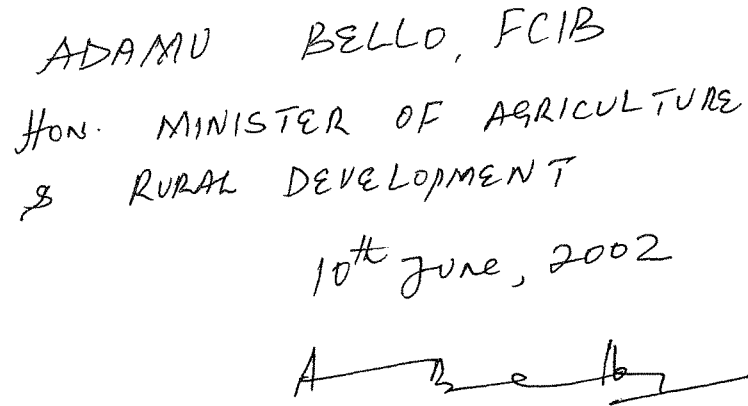 ADAMU BELLO, FCIB
HON. MINISTER OF AGRICULTURE
& RURAL DEVELOPMENT
10th June, 2002
A Bello